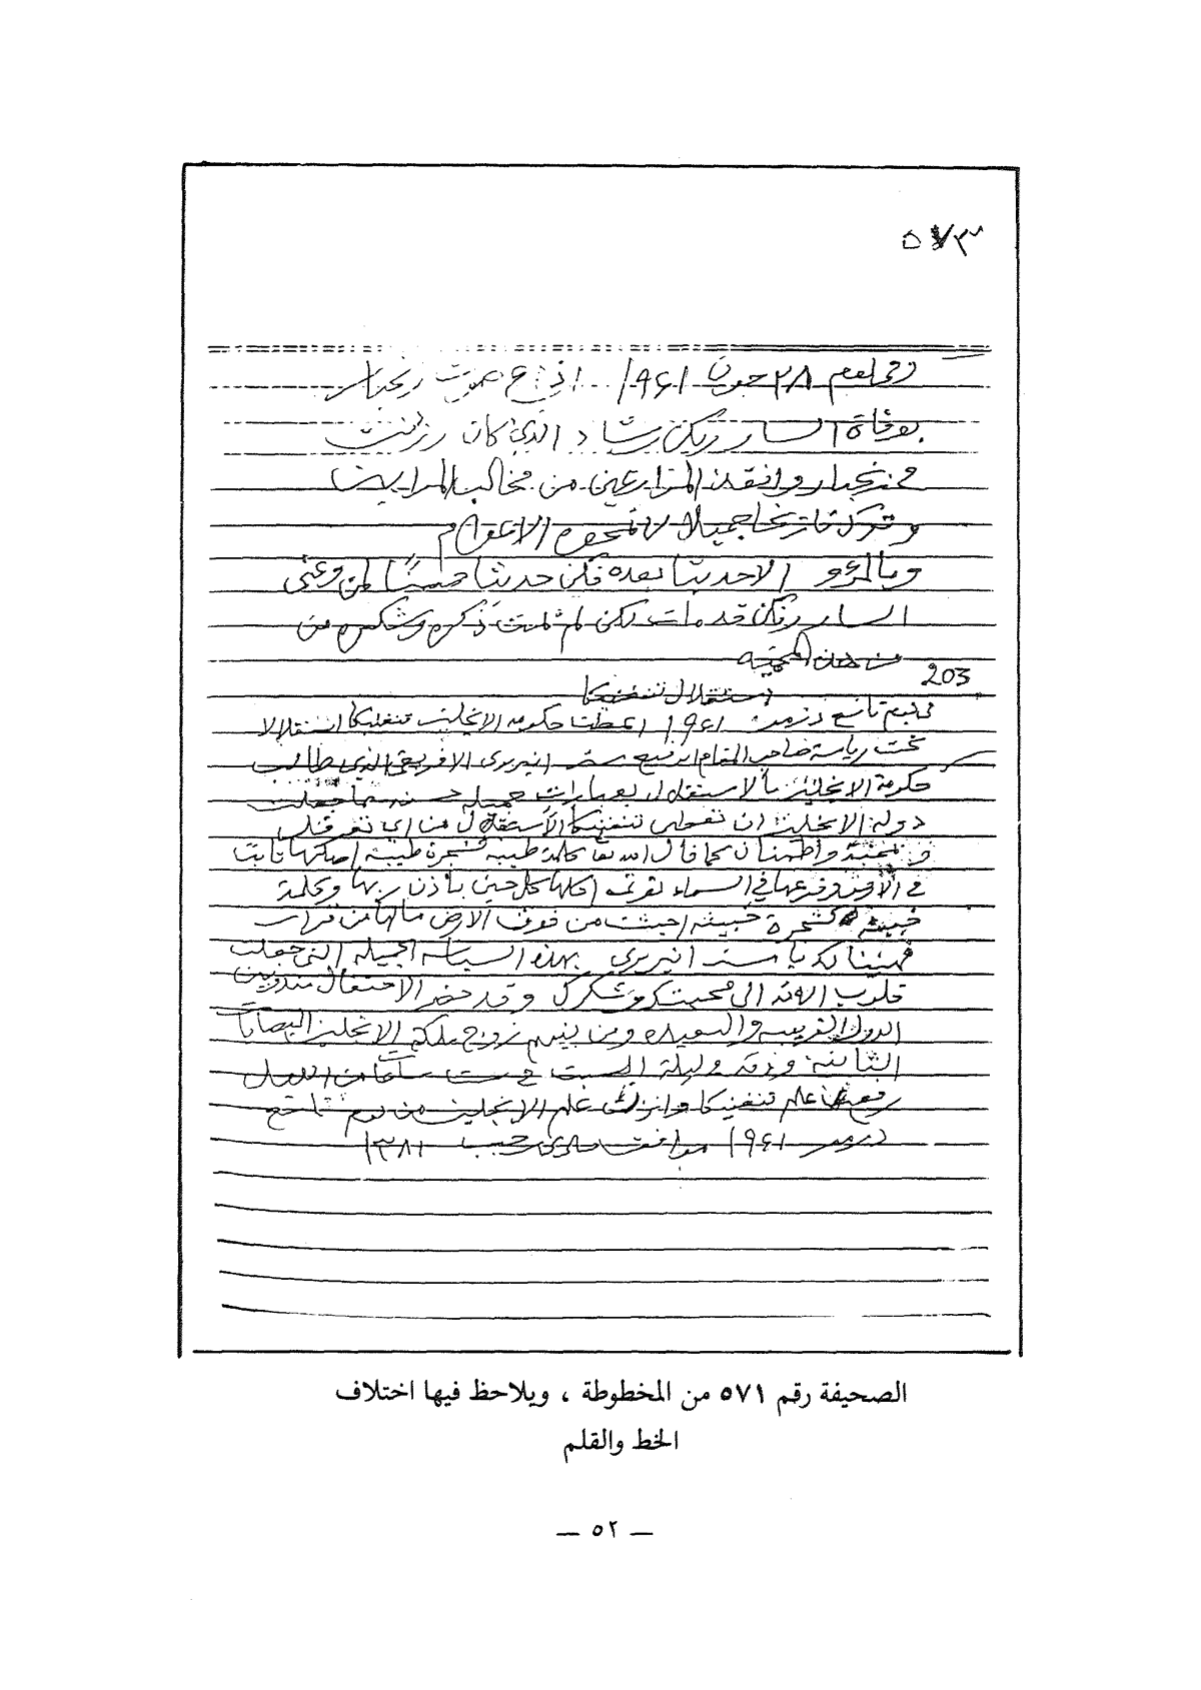 ٥٧٣
وفي يوم ٢٨ جون ١٩٦١ اذاع صوت زنجبار
بوفاة السار رنكن رشاد الذي كان رزدنت
في زنجبار وانقذ المزارعين من مخالب المرابين
وترك تاريخا جميلا لا تمحوه الاعوام
وبالمرؤ الا حديثا بعده فكن حديثا حسنا لمن وعى
السار رنكن قد مات لكن لم يمت ذكره وشكره من
من هذه المحمية
203
استقلال تنغنيكا
في يوم تاسع دزمبر ١٩٦١ اعطت حكومة الانجليز تنغنيكا استقلالا
تحت رياسة صاحب المقام الرفيع مستر انيريري الافريقي الذي طالب
حكومة الانجليز بالاستقلال بعبارات جميلة حسنة مما جعلت
دولة الانجليز ان تعطي تنغنيكا الاستقلال من اي تعرقل
و بمحبة واطمئنان كما قال الله تعا كلمة طيبة كشجرة طيبة اصلها ثابت
في الارض وفرعها في السماء تؤتى اكلها كل حين باذن ربها وكلمة
خبيثة كشجرة خبيثة اجتثت من فوق الارض ما لها من قرار
فهنيئا لك يا مستر انيريري بهذه السياسة الجميلة التي جعلت
قلوب الامة الى محبتك وشكرك وقد حضر الاحتفال مندوبين
الدول القريبة والبعيدة ومن بينهم زوج ملكة الانجليز اليصابات
الثانية وفي ليلة السبت في ست ساعات الليل
رفع علم تنغنيكا وانزلت علم الانجليز من يوم تاسع
دزمبر ١٩٦١ موافقت رجب ١٣٨١
الصحيفة رقم ٥٧١ من المخطوطة ، ويلاحظ فيها اختلاف
الخط والقلم
— ٥٢ —